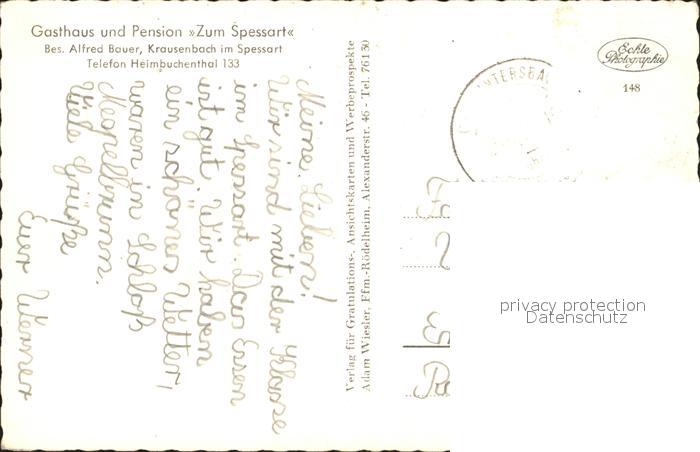 Gasthaus und Pension »Zum Spessart«
Bes. Alfred Bauer, Krausenbach im Spessart
Telefon Heimbuchenthal 133
Meine Lieben!
Wir sind mit der Klasse
im Spessart. Das Essen
ist gut. Wir haben
ein schönes Wetter,
waren in Schloß
Mespelbrunn.
Viele Grüße
Euer Werner
Verlag für Gratulations-, Ansichtskarten und Werbeprospekte
Adam Wiesler, Ffm.-Rödelheim, Alexanderstr. 46 - Tel. 76130
Echte
Photographie
148
privacy protection
Datenschutz